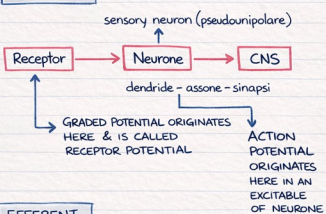 sensory neuron (pseudounipolare)
Receptor
Neurone
CNS
dendride - assone - sinapsi
GRADED POTENTIAL ORIGINATES
HERE & IS CALLED
RECEPTOR POTENTIAL
ACTION
POTENTIAL
ORIGINATES
HERE IN AN
EXCITABLE
OF NEURONE
EFFERENT